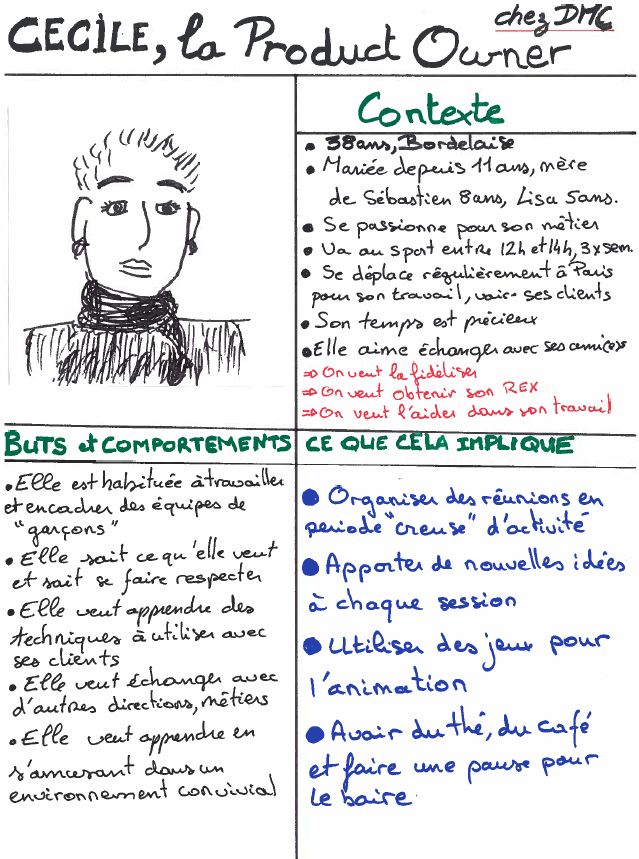 CECILE, la Product Owner
chez DMC
Contexte
• 38ans, Bordelaise
• Mariée depuis 11 ans, mère
de Sébastien 8ans, Lisa 5ans.
• Se passionne pour son métier
• Va au sport entre 12h et 14h, 3xsem.
• Se déplace régulièrement à Paris
pour son travail, voir ses clients
• Son temps est précieux
• Elle aime échanger avec ses ami(e)s
⇒ On veut la fidéliser
⇒ On veut obtenir son REX
⇒ On veut l'aider dans son travail
BUTS et COMPORTEMENTS
• Elle est habituée à travailler
et encadrer des équipes de
"garçons"
• Elle sait ce qu'elle veut
et sait se faire respecter
• Elle veut apprendre des
techniques à utiliser avec
ses clients
• Elle veut échanger avec
d'autres directions, métiers
• Elle veut apprendre en
s'amusant dans un
environnement convivial
CE QUE CELA IMPLIQUE
• Organiser des réunions en
periode "creuse" d'activité
• Apporter de nouvelles idées
à chaque session
• Utiliser des jeux pour
l'animation
• Avoir du thé, du café
et faire une pause pour
le boire